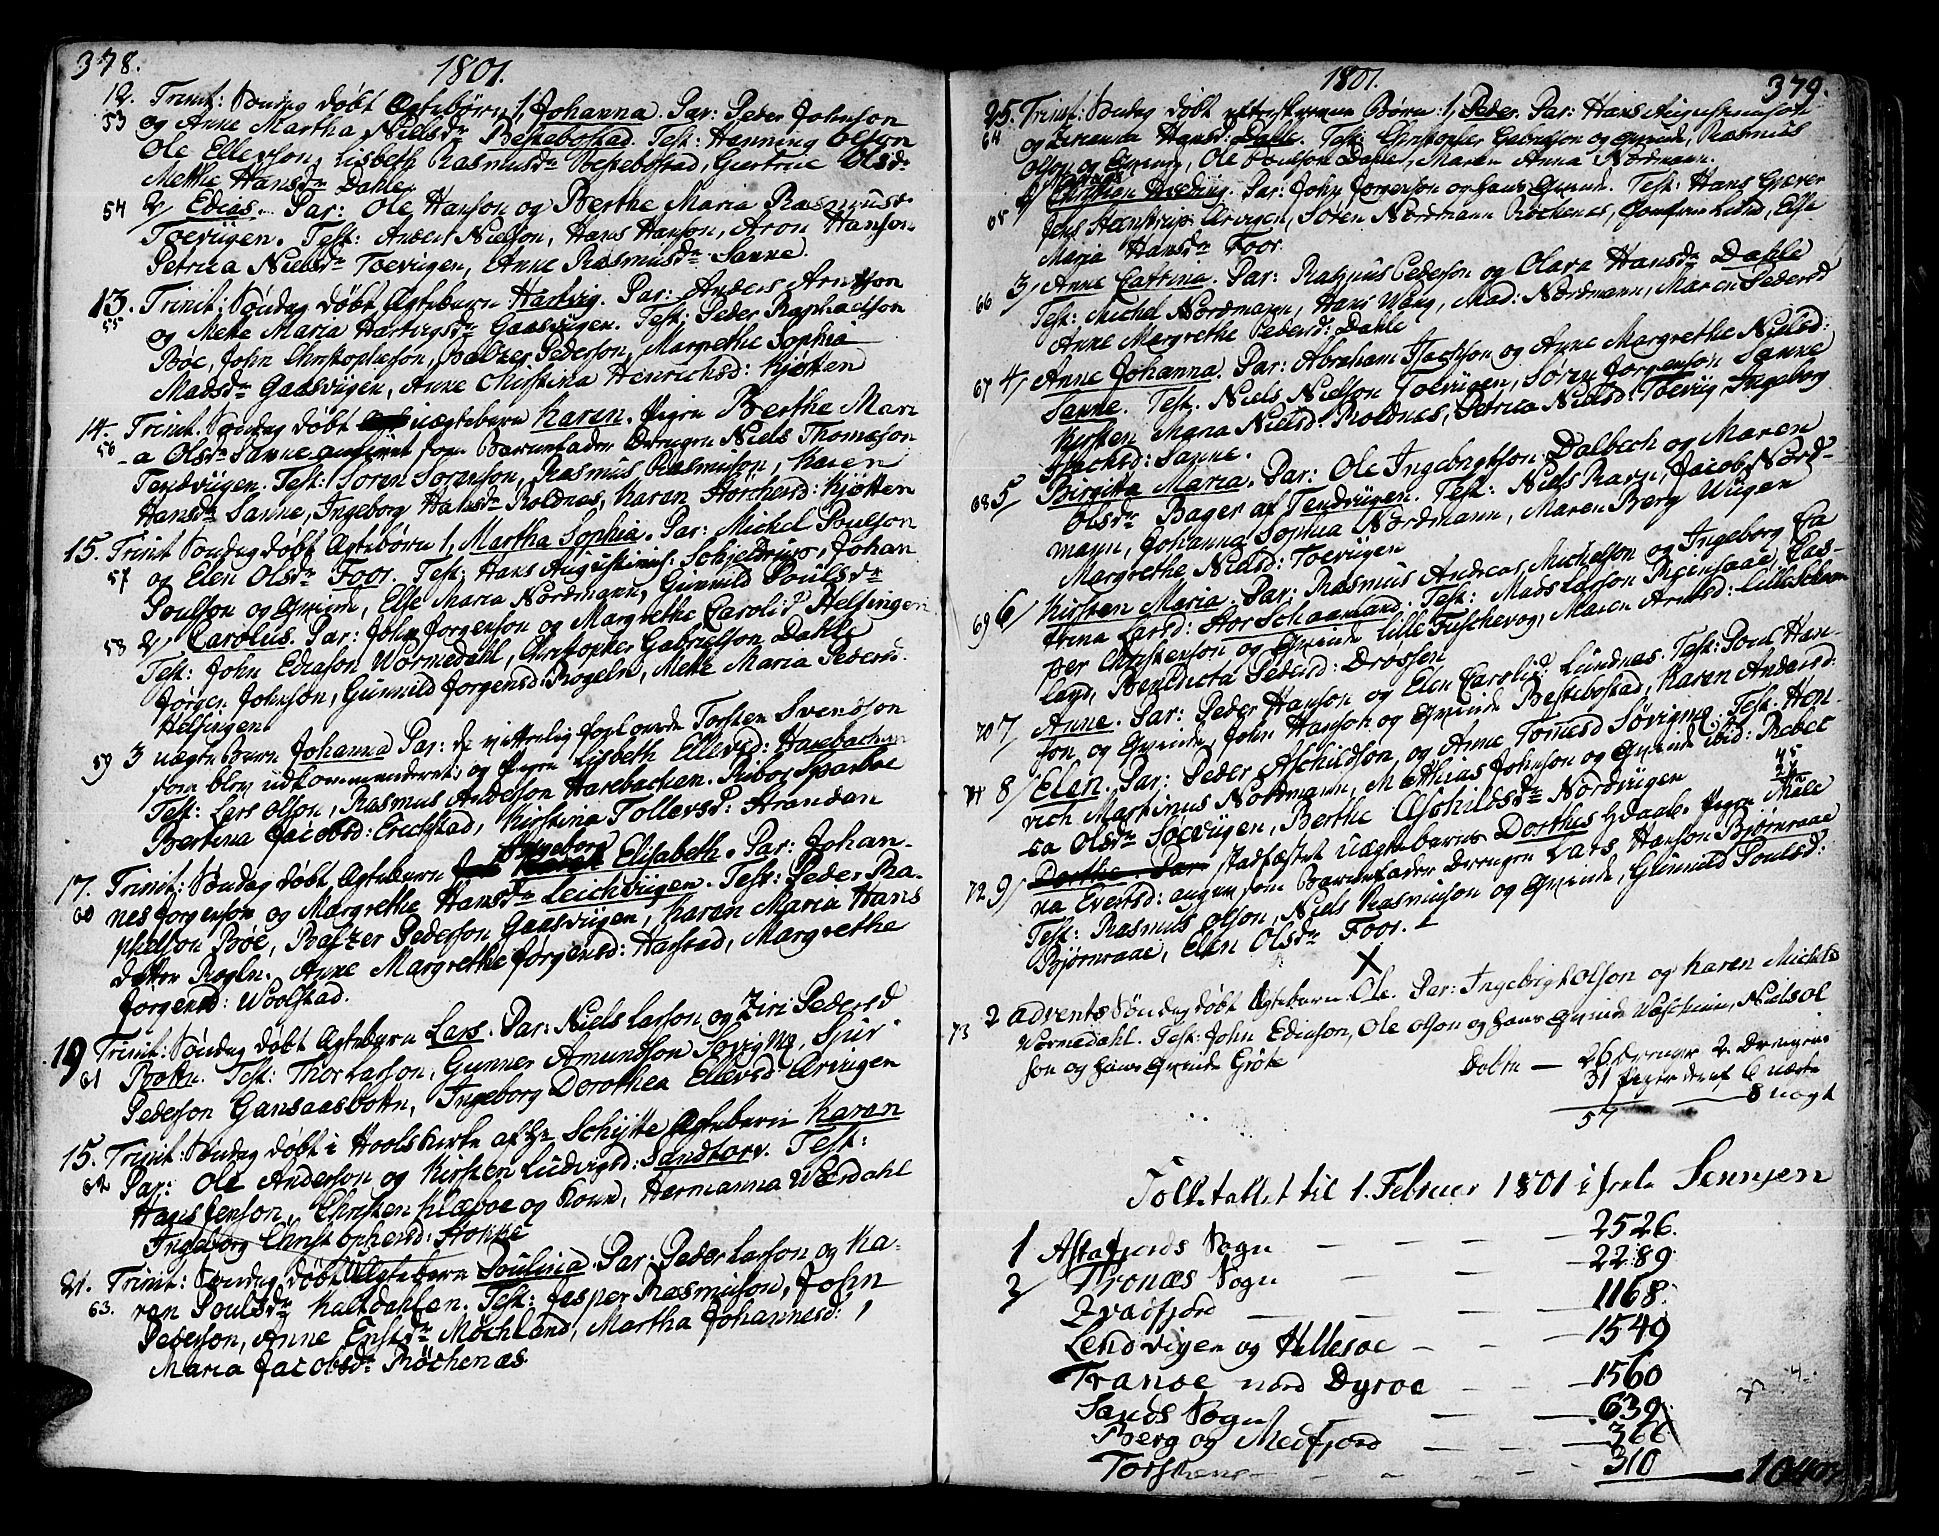 378.
1801.
12. Trinit: Søndag døbt Ægtebørn 1, Johanna. Par: Peder Johnson
53 og Anne Martha Nielsdr Bestebostad. Test: Henning Olson
Ole Ellevson, Lisbeth Rasmusdr Bestebostad, Giertrue Olsdr
Mette Hansdr Dahle.
54 2/ Edias. Par: Ole Hanson og Berthe Maria Rasmusdr
Toeviigen. Test: Anders Nielson, Hans Hanson, Aron Hanson
Petrica Nielsdr Toevigen, Anne Rasmusdr Sanne.
13. Trinit: Søndag døbt Ægtebarn Hartvig. Par: Anders Arntson
55 og Mette Maria Hartvigsdr Gaasviigen. Test: Peder Raphaelson
Bøe, John Christophersøn, Baltzer Pederson, Margrethe Sophia
Madsdr Gaasviigen, Anne Christina Henrichsd: Kjøtten
14. Trinit. Søndag døbt uægtebarn Karen. Pigen Berthe Mari
56 -a Olsdr Sanne angivet som Barnefader Drengen Niels Thomeson
Tendviigen. Test: Soren Sorenson, Rasmus Rasmuson, Karen
Hansdr Sanne, Ingeborg Hansdr Roldnæs, Karen Storchersd: Kjøtten
15. Trinit Søndag døbt Ægtebørn 1, Martha Sophia. Par: Michel Poulson
57 og Elen Olsdr Foor. Test: Hans Augustinus: Schjeldrup, Johan
Poulson og Qvinde, Else Maria Nordmann, Gunnild Poulsdr
58 2/ Carolus. Par: John Jorgenson og Margrethe Carolid: Helsingen
Test: John Ediason Wormedahl, Christopher Gabrielson Dahle
Jørgen Johnson, Gunnild Jorgensd: Rogeln, Mette Maria Pedersd.
Helsingen
59 3 uægte barn Johanna Par: de vittelig forlovede Torsten Svendson
som blev udkommanderet, og Pigen Lisbeth Ellevsd: Harebachen
Test: Lars Olson, Rasmus Anderson Harebachen. Riboe Sparboe
Bertina Jacobsd: Erichstad, Kirstina Tollevsd: Stranden
Ingeborg
17. Trinit: Søndag døbt Ægtebarn Elisabeth. Par: Johan-
60 nes Jorgenson og Margrethe Hansdr Leichviigen. Test: Peder Ra-
phelson Bøe, Baltzer Pederson Gaasviigen, Karen Maria Hans
datter Rogln. Anne Margrethe Jørgensd: Harstad, Margrethe
Jørgensd: Woolstad.
19 Trinit: Søndag døbt Ægtebarn Lars. Par: Niels Larson og Ziri Pedersd
61 Bottn. Test: Thor Larson, Gunner Amundson Sovigen, Sjur
Pederson Gansaasbottn, Ingeborg Dorothea Ellevsd Ervigen
15. Trinit: Søndag døbt i Hools Kirke af Hr Schytte Ægtebarn Karen
62 Par: Ole Anderson og Kirsten Ludvigsd: Sandtorv. Test:
Hans Jenson, Christen Klæboe og Kone, Hermanna Wærdahl
Ingeborg Christophersd: Stokke
21. Trinit: Søndag døbt Ægtebarn Poulina. Par: Peder Larson og Ka-
63. ren Poulsdr Kaltdahlen. Test: Jesper Rasmuson, John
Pederson, Anne Enstdr Møchland, Martha Johannesd:
Maria Jacobsdr Røchenæs.
1801.
379.
25. Trinit: Søndag døbt efterskrevne Børn: 1, Peder. Par: Hans Augustinuson
64 og Hansd: Dahle. Test: Christopher Gabrielson og Qvinde, Rasmus
Olson og Qvinde, Ole Poulson Dahle, Maren Anna Nordmann.
2/ Christian Hveding. Par: John Jorgenson og hans Qvinde. Test: Hans Greger
65 Jens Hemstrup Ervigen, Søren Nordmann Røchenes, Jomfrue Lund, Else
Maria Hansdr Foor.
66 3/ Anne Cattrina. Par: Rasmus Pederson og Olava Hansdr Dahle
Test: Michel Nordmann, Hans Wang, Mad: Nordmann, Maren Pedersd
Anne Margrethe Pedersd: Dahle
67 4/ Anne Johanna. Par: Abraham Isachson og Anne Margrethe Nielsd:
Sanne. Test. Niels Nielson Toeviigen, Soren Jorgenson Sanne
Kirsten Maria Nielsd: Roldnæs, Petrica Nielsd: Toevig, Ingeborg
Isachsd: Sanne.
68 5 Birgitta Maria. Par: Ole Ingebrigtson Dalbech og Maren
Olsdr Bager af Tendviigen. Test: Niels Ravn, Jacob Nord-
mann, Johanna Sophia Nordmann, Maren Berg Wiigen
Margrethe Nielsd: Toeviigen
69 6/ Kirsten Maria. Par: Rasmus Andreas Michelson og Ingeborg Ca
ttrina Larsd: Stor Schaanland. Test: Mads Larson Reensaae, Cas-
per Christenson og Qvinde Lille Fuschevog, Maren Arntsd: Lille Schaan
land, Benedicta Pedersd: Drossen
70 7/ Anne. Par: Peder Hanson og Elen Carolid: Lundnæs. Test: Poul Han-
son og Qvinde, John Hanson og Qvinde Bestebostad, Karen Andersd:
71 8/ Elen. Par: Peder Aschildson og Anne Tomasd Søvigen. Test. Hen-
rich Martinus Nordmann, Mathias Johnson og Qvinde ibid: Rebec
ca Olsdr Søeviigen, Berthe Aschildsdr Nordviigen
72 9/ Dorthe. Par stadfæstet uægtebarns Dorthes hDaab. Pigen Male
na Evertsd: angav som Barnefader Drengen Lars Hanson Bjørnraae
Test: Rasmus Olson, Niels Rasmuson og Qvinde, Gunnild Poulsd:
Bjørnraae, Elen Olsdr Foor.
X
73 2 Advents Søndag døbt Ægtebarn Ole. Par: Ingebrigt Olson og Karen Michelsd
Wormedahl. Test: John Ediason, Ole Olson og hans Qvinde, Niels Ol
son og hans Qvinde Grøte
Døbte — 26 Drenger 2 Drenger
31 Piger deraf 6 uægte
57 — 8 uægt
Folketallet til 1. Februar 1801 i heele Sennjen
1 Astafjords Sogn — 2526.
2/ Tronæs Sogn — 2289.
Qvæfjord — 1168.
Lendvigen og Hillesøe — 1549
Tranøe med Dyrøe — 1560
Sands Sogn — 639
Berg og Medfjord — 366
Torsken — 310
1040